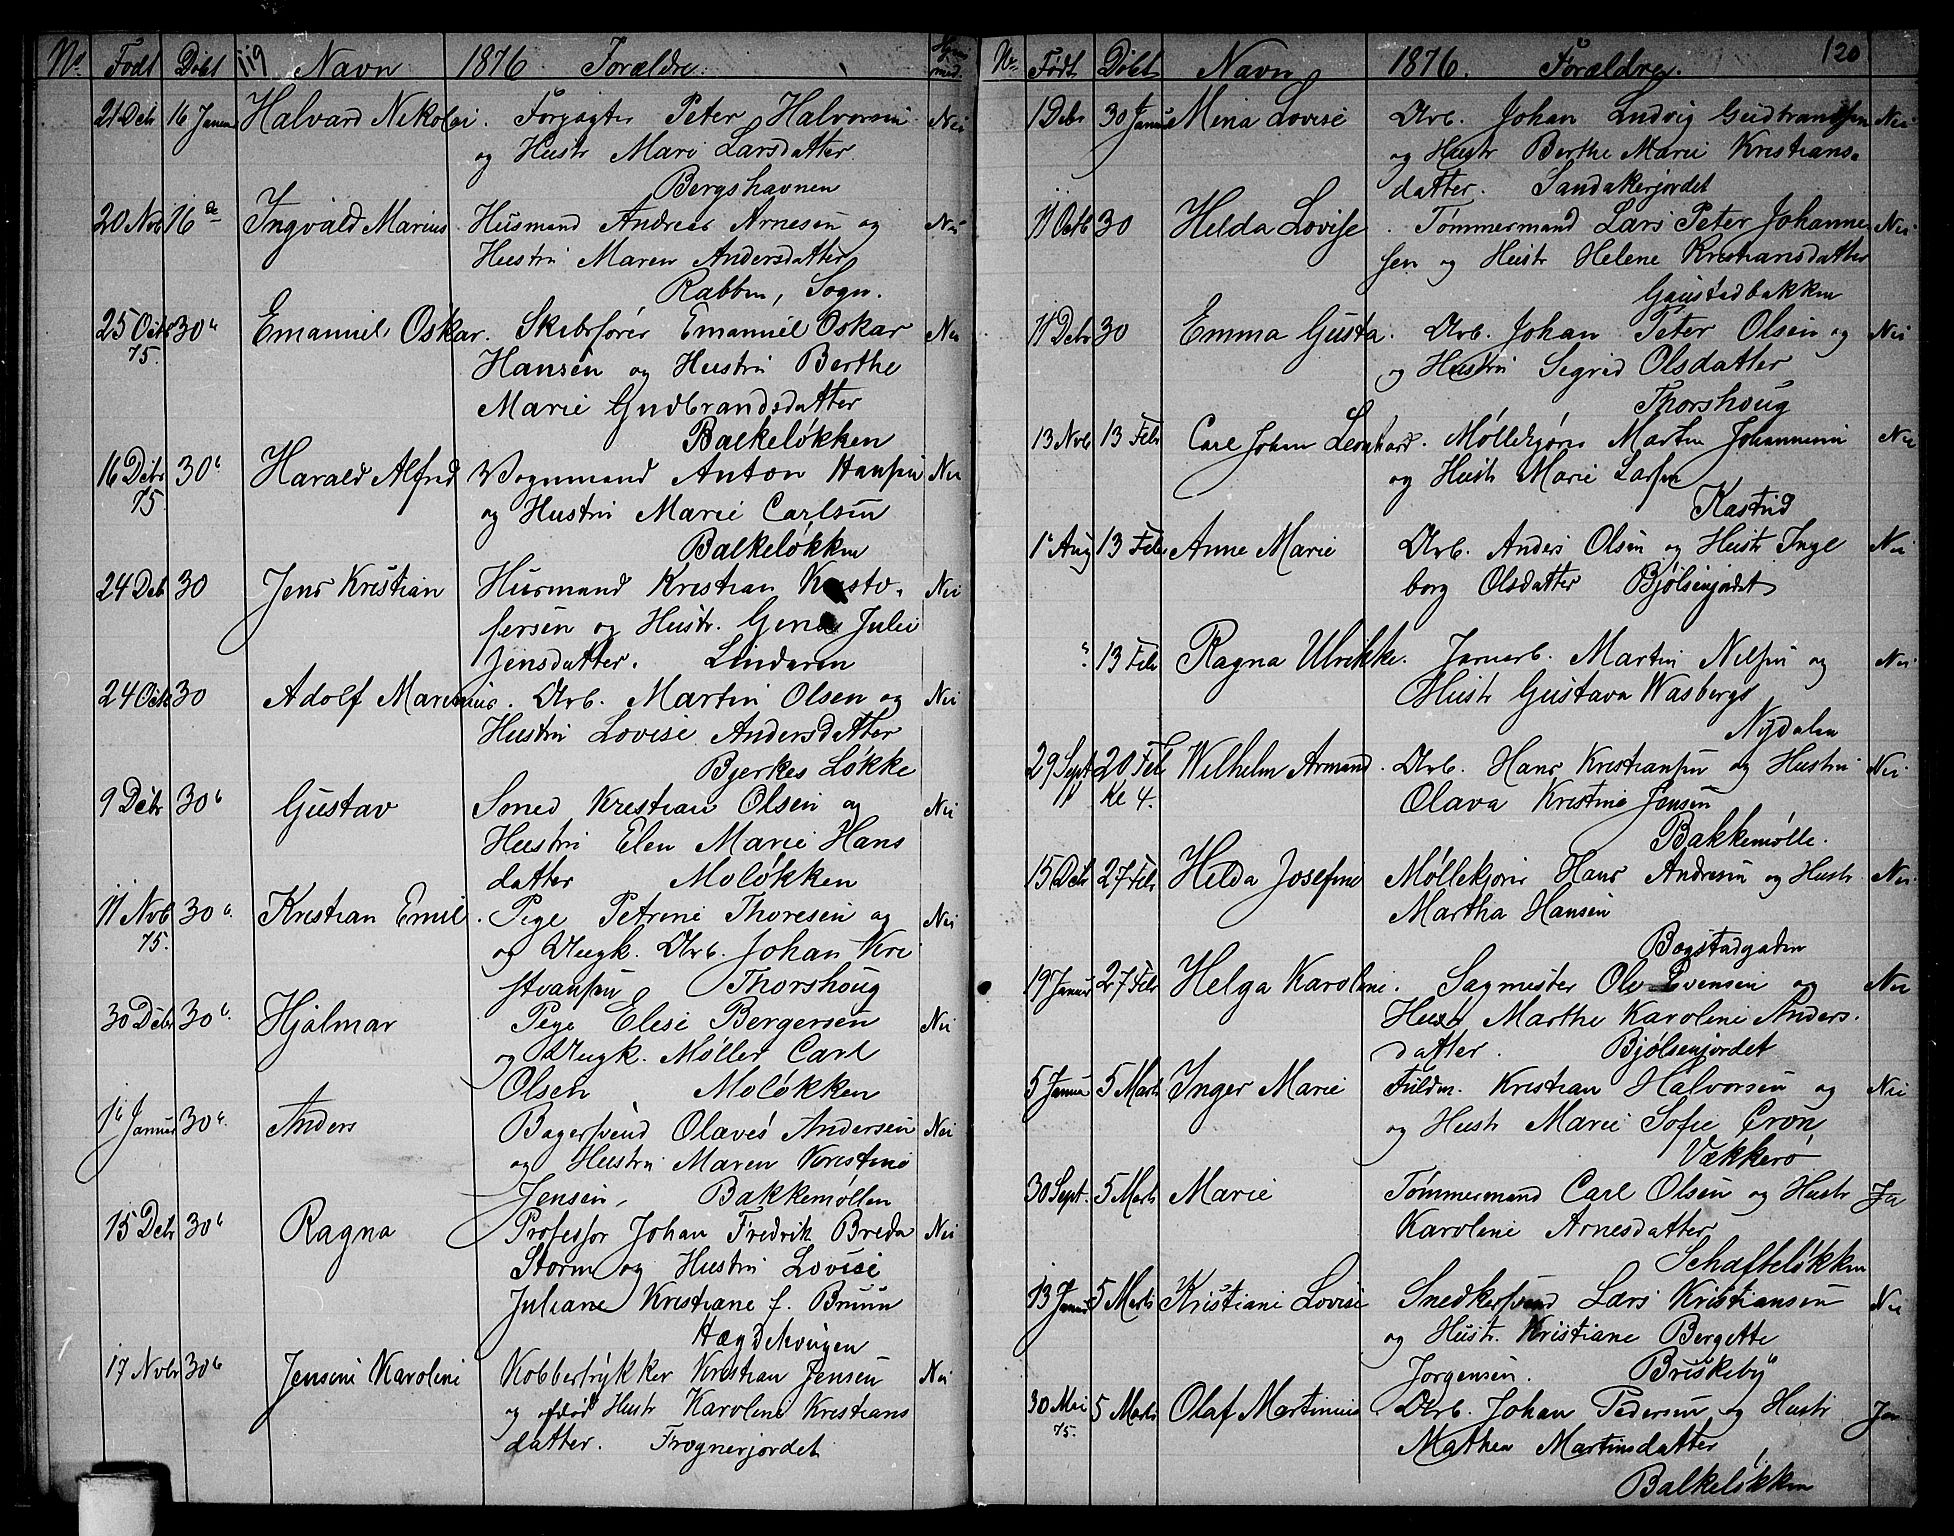 No Født Døbt 119 Navn 1876 Forældre.
21 Debr 16 Januar Halvard Nikolai. Forpagter Peter Halvorsen Nei
og Hustr Mari Larsdatter
Bergshavnen
20 Nvb 16 de Ingvald Marius Husmand Andreas Arnesen og Nei
Hustri Maren Andersdatter
Rabben, Sogn.
25 Octb 30 Emanuel Oskar. Skibsfører Emanuel Oskar Nei
75. Hansen og Hustri Berthe
Marie Gudbrandsdatter
Balkeløkken
16 Debr 30 Harald Alfred Vognmand Anton Hansen Nei
75. og Hustri Marie Carlsen
Balkeløkken
24 Deb 30 Jens Kristian Husmand Kristian Kristo- Nei
fersen og Hustr. Julie
Jensdatter. Linderen
24 Octb 30 Adolf Marenius. Arb. Martin Olsen og Nei
Hustri Lovise Andersdatter
Bjerkes Løkke
9 Debr 30 Gustav Smed Kristian Olsen og Nei
Hustri Elen Marie Hans
datter Moløkken
11 Nvb 30 Kristian Emil. Pige Petrine Thoresen og Nei
75. og Ungk. Arb. Johan Kri
stiansen Thorshoug
30 Debr 30 Hjalmar Pige Elise Bergersen Nei
og Ungk. Møller Carl
Olsen Moløkken
1 Januar 30 Anders Bagersvend Olaves Andersen Nei
og Hustri Maren Kristine
Jensen, Bakkemøllen
15 Debr 30 Ragna Professor Johan Fredrik Breda Nei
Storm og Hustri Lovise
Juliane Kristiane f. Bruun
Hægdehougen
17 Nvbr 30 Jensine Karoline Kobbertrykker Kristian Jensen Nei
og Hustr Karoline Kristians
datter. Frognerjordet
No Født Døbt Navn 1876. Forældre. 120
1 Debr 30 Januar Mina Lovise Arb. Johan Ludvig Gudbrandsen Nei
og Hustr Berthe Marie Kristians-
datter. Sandakerjordet
11 Octb 30 Helda Lovise. Tømmermand Lars Peter Johanne Nei
sen og Hustr Helene Kristiansdatter
Gaustadbakken
11 Debr 30 Emma Gusta. Arb. Johan Peter Olsen og Nei
og Hustri Segrid Olsdatter
Thorshoug
13 Nvb 13 Febr Carl Johan Leonhard. Møllekjører Martin Johannesen Nei
og Hustr Marie Larsen
Kastud
1 Aug 13 Febr Anne Marie Arb. Anders Olsen og Hustr Inge Nei
borg Olsdatter Bjølsenjordet
" 13 Febr Ragna Ulrikke. Jernarb. Martin Nilsen og Nei
Hustr Gustava Wasbergs
Nydalen
29 Sept 20 Feb Wilhelm Armand. Arb. Hans Kristiansen og Hustri Nei
Kl 4. Olava Kristine Jensen
Bakkemølle.
15 Debr 27 Febr Helda Josefine Møllekjører Hans Andresen og Hustr. Nei
Martha Hansen
Bogstadgaden
19 Januar 27 Febr Helga Karoline. Sagmester Ole Evensen og Nei
Hustr Marthe Karoline Anders.
datter. Bjølsenjordet
5 Januar 5 Marts Inger Marie Fuldm. Kristian Halvorsen og Nei
og Hustr Marie Sofie Cron
Vækkerø
30 Sept. 5 Marts Marie Tømmermand Carl Olsen og Hustr Ja
Karoline Arnesdatter
Schafteløkken
13 Januar 5 Marts Kristiane Lovise Snedkersvend Lars Kristiansen Nei
og Hustr. Kristiane Bergette
Jørgensen. Briskeby
30 Mai 5 Marts Olaf Martinius Arb. Johan Pedersen og Hustr Ja
75. Mathea Martinsdatter
Balkeløkken